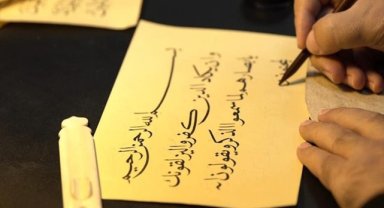 بسم الله الرحمن الرحيم
وان يكاد الذين كفروا ليزلقونك
بابصارهم لما سمعوا الذكر ويقولون انه